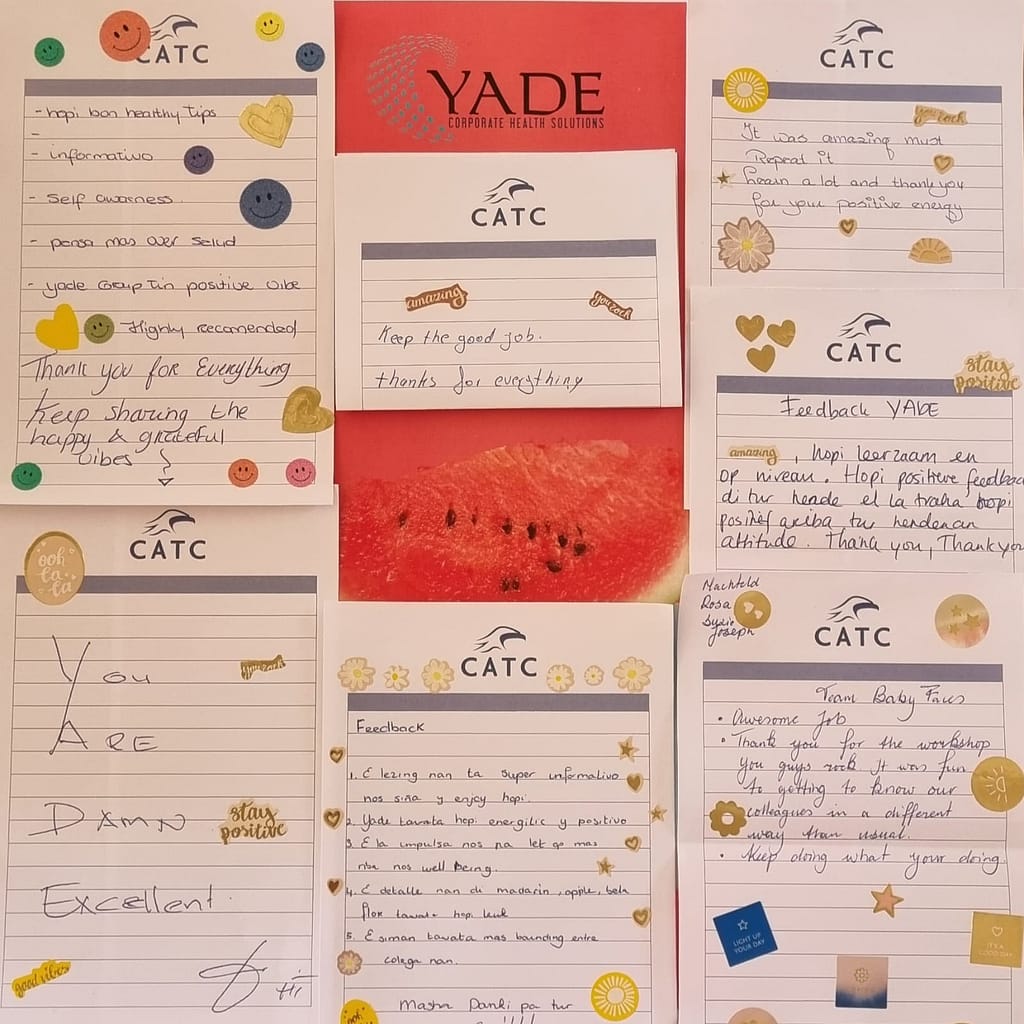 CATC
- hopi bon healthy tips
-
- informativo
- Self awarness.
- pensa mas over salud
- yade Group tin positive vibe
Highly recomended
Thank you for Everything
Keep sharing the
happy & grateful
vibes
YADE
CORPORATE HEALTH SOLUTIONS
CATC
amazing
you rock
Keep the good job.
thanks for everything
CATC
you rock
It was amazing must
Repeat it
learn a lot and thank you
for your positive energy
CATC
stay
positive
Feedback YADE
amazing, hopi leerzaam en
op niveau. Hopi positieve feedback
di tur hende el la traha hopi
positief ariba tur hendenan
attitude. Thank you, Thank you
CATC
ooh
la
la
You
you rock
ARE
DAMN
stay
positive
Excellent.
good vibes
CATC
Feedback
1. E lezing nan ta super informativo
nos siña y enjoy hopi.
2. Yade tawata hopi energilic y positivo
3. E la impulsa nos pa let op mas
riba nos well being.
4. E detalle nan di madarin, apple, bela
flor tawata hopi leuk
5. E siman tawata mas bounding entre
colega nan.
Masha Danki pa tur
ooh
Machteld
Rosa
Joseph
CATC
Team Baby Faces
• Awesome Job
• Thank you for the workshop
You guys rock. It was fun
to getting to know our
colleagues in a different
way than usual.
• Keep doing what your doing.
LIGHT UP
YOUR DAY
IT'S A
GOOD DAY